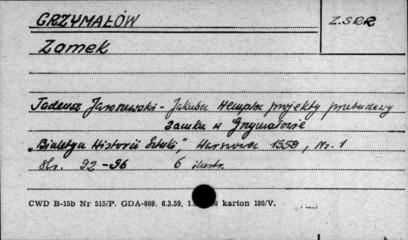 GRZYMAŁÓW
Z.SRR
Zamek
Tadeusz Jaroszewski - Jakuba Hempla projekty przebudowy
zamku w Grzymałowie
„Biuletyn Historii Sztuki," Warszawa 1959, Nr. 1
str. 92-96 6 ilustr.
CWD B-15b Nr 515/P. GDA-809, 6.3.59, karton 180/V.